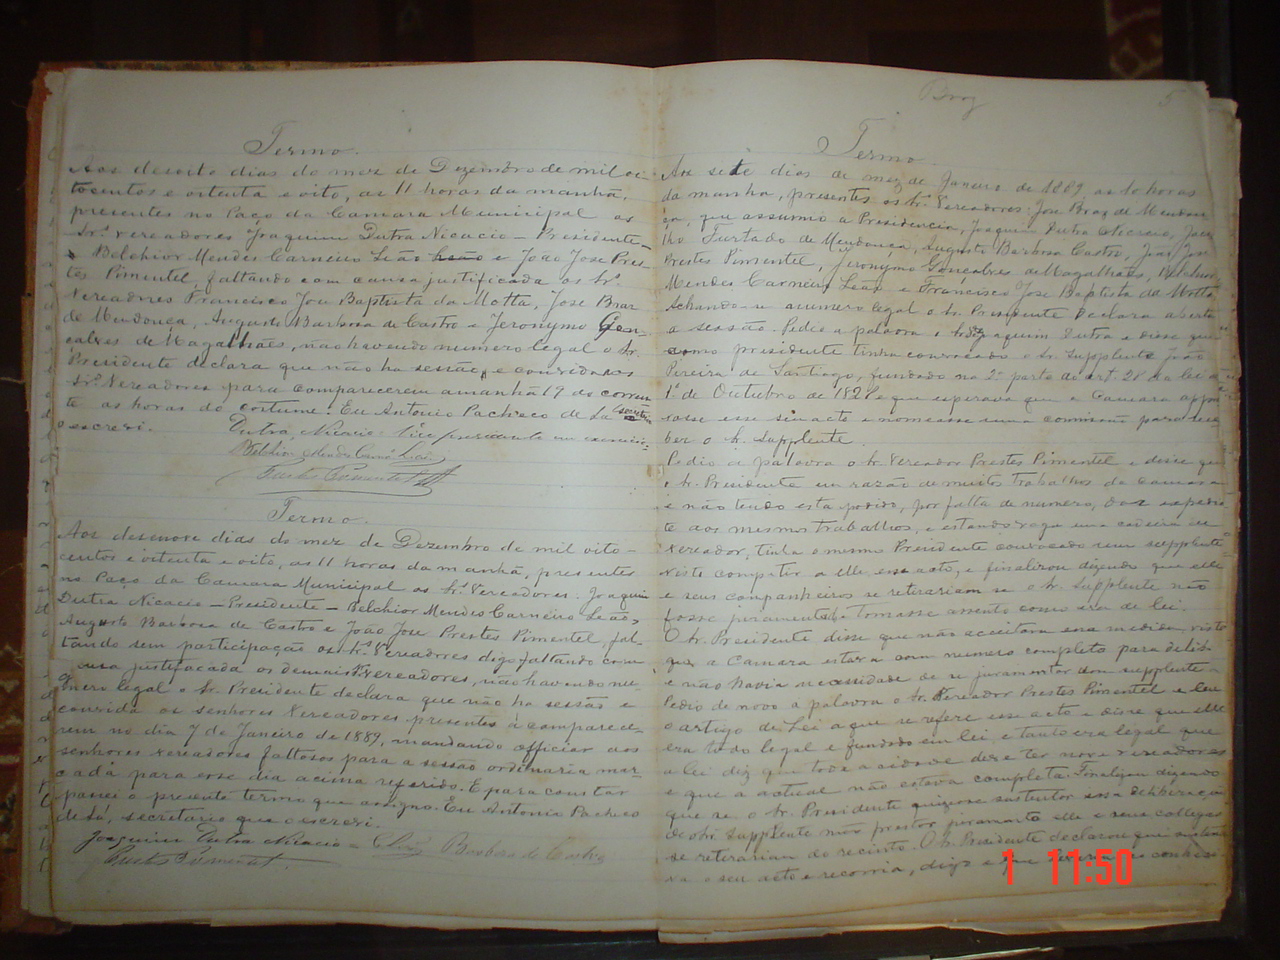 Termo.
Aos desoito dias do mez de Dezembro de mil oi-
tocentos e oitenta e oito, as 11 horas da manhã,
presentes no Paço da Camara Municipal os
Sr.s Vereadores Joaquim Dutra Nicacio - Presidente -
Belchior Mendes Carneiro Leão e João Jose Pres-
tes Pimentel, faltando com causa justificada os Sr.s
Vereadores Francisco Jose Baptista da Motta, Jose Braz
de Mendonça, Augusto Barbosa de Castro e Jeronymo Gon-
calves de Magalhães, não havendo numero legal o Sr.
Presidente declara que não ha sessão, e convida os
Sr.s Vereadores para comparecerem amanhã 19 do corren-
te as horas do costume. Eu Antonio Pacheco de Sá secretario
o escrevi.
Dutra Nicacio Vice presidente em exercicio
Belchior Mendes Carn.o Leão
Prestes Pimentel
Termo.
Aos desenove dias do mez de Dezembro de mil oito-
centos e oitenta e oito, as 11 horas da manhã, presentes
no Paço da Camara Municipal os Sr.s Vereadores: Joaquim
Dutra Nicacio - Presidente - Belchior Mendes Carneiro Leão,
Augusto Barbosa de Castro e João Jose Prestes Pimentel, fal-
tando sem participação os Sr.s Vereadores digo faltando com
causa justificada os demais Vereadores, não havendo nu-
mero legal o Sr. Presidente declara que não ha sessão e
convida os senhores Vereadores presentes à comparece-
rem no dia 7 de Janeiro de 1889, mandando officiar aos
senhores vereadores faltosos para a sessão ordinaria mar-
cada para esse dia acima referido. E para constar
passei o presente termo que assigno. Eu Antonio Pacheco
de Sá, secretario que o escrevi.
Joaquim Dutra Nicacio - Barbosa de Castro
Prestes Pimentel
Braz
5
Termo.
Aos sete dias de mez de Janeiro de 1889 as 10 horas
da manhã, presentes os Sr.s Vereadores: Jose Braz de Mendon-
ça que assumio a Presidencia, Joaquim Dutra Nicacio,
Furtado de Mendonça, Augusto Barbosa Castro, João Jose
Prestes Pimentel, Jeronymo Gonçalves de Magalhães, Belchior
Mendes Carneiro Leão e Francisco Jose Baptista da Motta
achando-se numero legal o Sr. Presidente declara aberta
a sessão. Pedio a palavra o Joaquim Dutra e disse que
como presidente tinha convocado o Sr. Supplente João
Pereira de Santiago, fundado na 2ª parte do art. 28 da lei de
1º de Outubro de 1828 e que esperava que a Camara appro-
vasse esse seu acto e nomeasse uma commissão para rece-
ber o Sr. Supplente.
Pedio a palavra o Sr. Vereador Prestes Pimentel e disse que
o Sr. Presidente em razão de muitos trabalhos da camara
e não tendo esta podido, por falta de numero, dar expedien-
te aos mesmos trabalhos, e estando vaga uma cadeira de
Vereador, tinha o mesmo Presidente convocado um supplente
visto competir a elle esse acto, e finalizou dizendo que elle
e seus companheiros se retirariam se o Sr. Supplente não
fosse juramentado e tomasse assento como era de lei.
O Sr. Presidente disse que não aceitava essa medida, visto
que a Camara estava com numero completo para delib.
e não havia necessidade de se juramentar um supplente -
Pedio de novo a palavra o Sr. Vereador Prestes Pimentel e leu
o artigo de Lei a que se refere esse acto e disse que elle
era todo legal e fundado em lei e tanto era legal que
a lei diz que toda a cidade deve ter nove vereadores
e que a actual não estava completa. Finalizou dizendo
que se o Sr. Presidente quizesse sustentar essa deliberação
de o Sr. Supplente não prestar juramento elle e seus collegas
se retirariam do recinto. O Sr. Presidente declarou que sustenta-
va o seu acto e recorria, digo e que
1 11:50